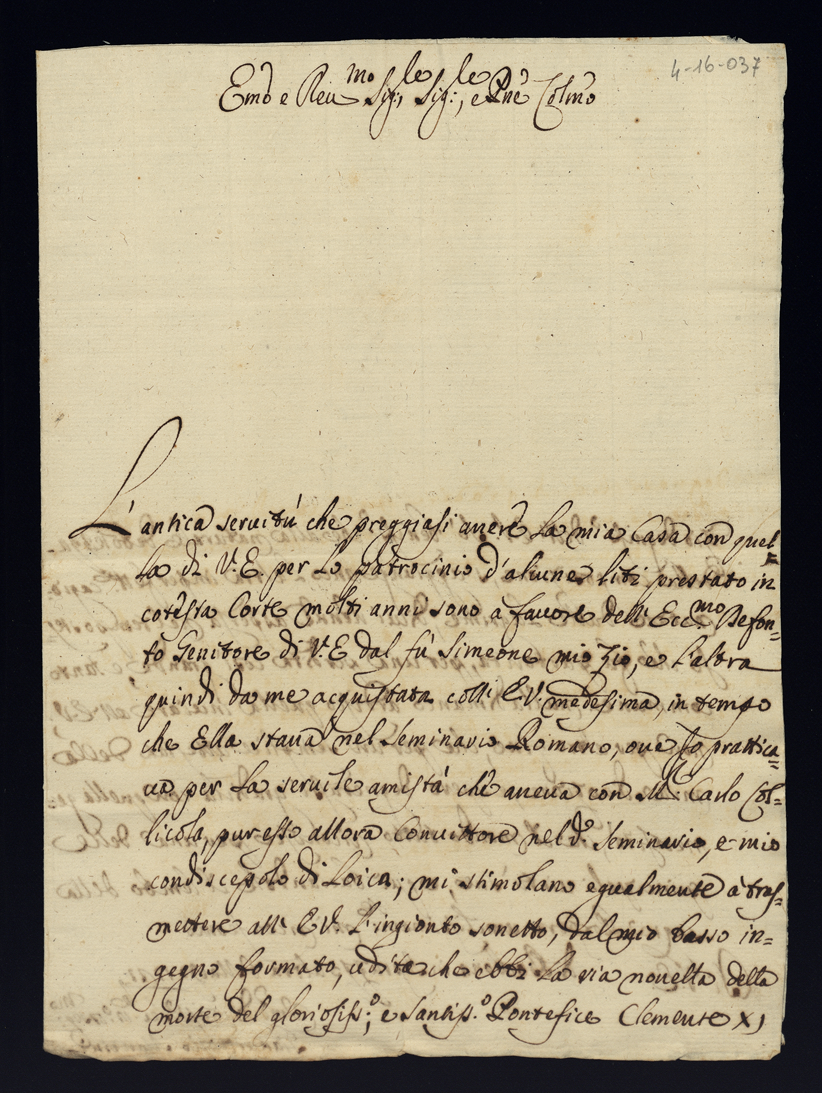 4-16-037
Emõ e Reu.mo Sig.le Sig.le, e Pñe Colmõ
L'antica seruitù che preggiasi auere La mia Casa con quel-
La di V.E. per Lo patrocinio d'alcune liti prestato in
cotesta Corte molti anni sono à fauore dell'Ecc.mo Defon-
to Genitore di V.E dal fù Simeone mio Zio, e L'altra
quindi da me acquistata coll'E.V. medesima, in tempo
che Ella staua nel Seminario Romano, oue Io prattica-
ua per La seruile amistà che aueua con M.r Carlo Col-
licola, pur esso allora Conuittore nel d.o Seminario, e mio
condiscepolo di Loica; mi stimolano egualmente à tras-
mettere all'E.V. L'ingionto sonetto, dal mio basso in-
gegno formato, udita che ebbi La ria nouella della
morte del gloriosiss.o, e Santiss.o Pontefice Clemente XI